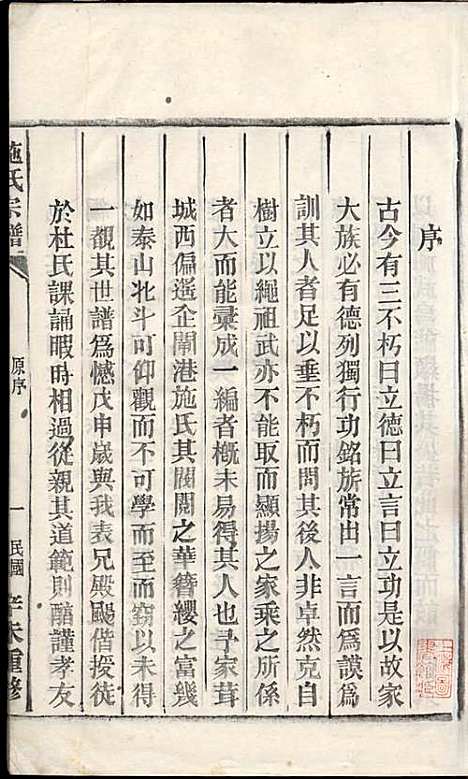 序
古今有三不朽曰立德曰立言曰立功是以故家
大族必有德列獨行功銘旂常出一言而爲謨爲
訓其人者足以垂不朽而間其後人非卓然克自
樹立以繩祖武亦不能取而顯揚之家乘之所係
者大而能彙成一編者槪未易得其人也予家葺
城西偏遥企閘港施氏其閥閱之華簪纓之富幾
如泰山北斗可仰觀而不可學而至而窃以未得
一覩其世譜爲憾戊申嵗與我表兄殿颺偕授徒
於杜氏課誦暇時相過從親其道範則醕謹孝友
施氏宗譜
原序
一
民國
辛未重修